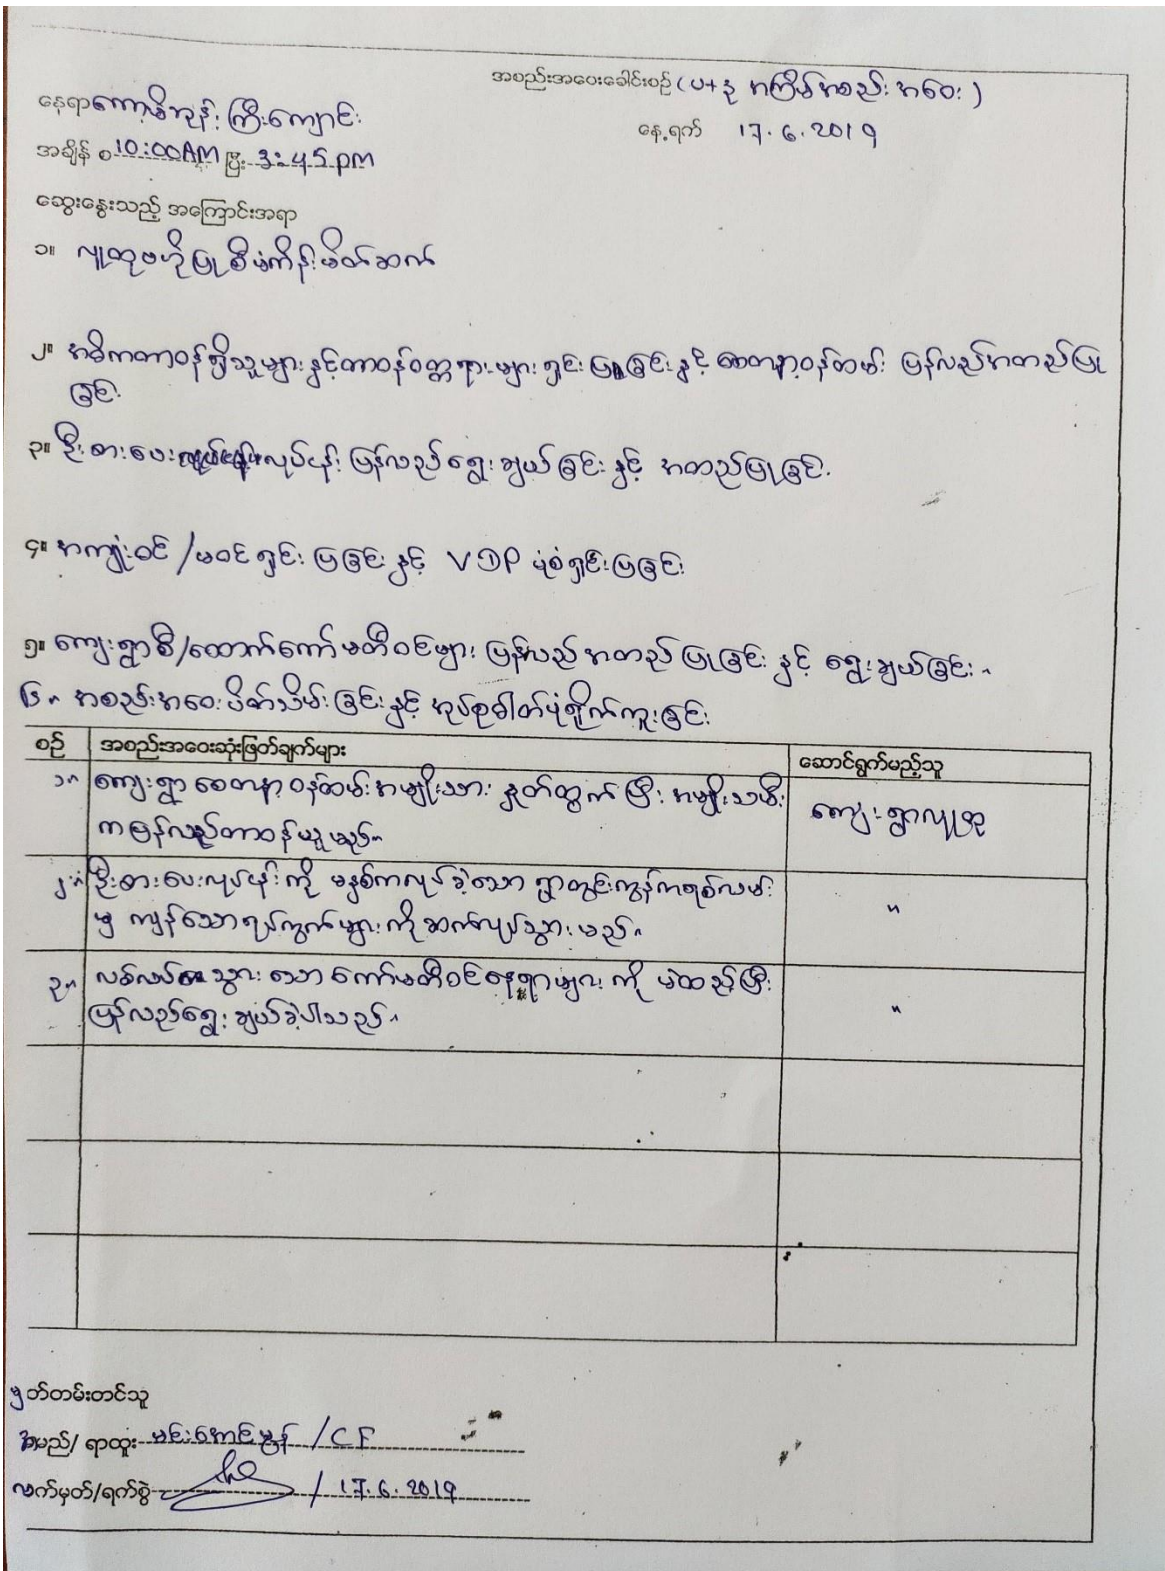 အစည်းအဝေးခေါင်းစဉ် (ပ+ဒု အကြိမ်အစည်းအဝေး)
နေရာ ကော့မိုဘုန်းကြီးကျောင်း
နေ့ရက် 17.6.2019
အချိန် စ 10:00AM ပြီး 3:45 pm
ဆွေးနွေးသည့် အကြောင်းအရာ
၁။ လူထုဗဟိုပြုစီမံကိန်းမိတ်ဆက်
၂။ အဓိကတာဝန်ရှိသူများနှင့်တာဝန်ဝတ္တရားများရှင်းပြခြင်းနှင့် စေတနာ့ဝန်ထမ်း ပြန်လည်အတည်ပြု
ခြင်း
၃။ ဦးစားပေးလုပ်ငန်း ပြန်လည်ရွေးချယ်ခြင်းနှင့် အတည်ပြုခြင်း
၄။ အကျုံးဝင်/မဝင်ရှင်းပြခြင်းနှင့် VDP ပုံစံရှင်းပြခြင်း
၅။ ကျေးရွာစီ/ထောက်ကော်မတီဝင်များ ပြန်လည်အတည်ပြုခြင်းနှင့် ရွေးချယ်ခြင်း။
၆။ အစည်းအဝေးပိတ်သိမ်းခြင်းနှင့် အုပ်စုဓါတ်ပုံရိုက်ကူးခြင်း
စဉ် အစည်းအဝေးဆုံးဖြတ်ချက်များ ဆောင်ရွက်မည့်သူ
၁။ ကျေးရွာစေတနာ့ဝန်ထမ်းအမျိုးသား နှုတ်ထွက်ပြီး အမျိုးသမီး ကျေးရွာလူထု
က ပြန်လည်တာဝန်ယူမည်။
၂။ ဦးစားပေးလုပ်ငန်းကို မနှစ်ကလုပ်ခဲ့သော ရွာတွင်းကွန်ကရစ်လမ်း "
မှ ကျန်သောရပ်ကွက်များကိုဆက်လုပ်သွားမည်။
၃။ လစ်လပ်သွားသော ကော်မတီဝင်နေရာများကို မဲထည့်ပြီး "
ပြန်လည်ရွေးချယ်ခဲ့ပါသည်။
မှတ်တမ်းတင်သူ
အမည်/ ရာထူး မင်းအောင်မွန် /CF
လက်မှတ်/ရက်စွဲ / 17.6.2019